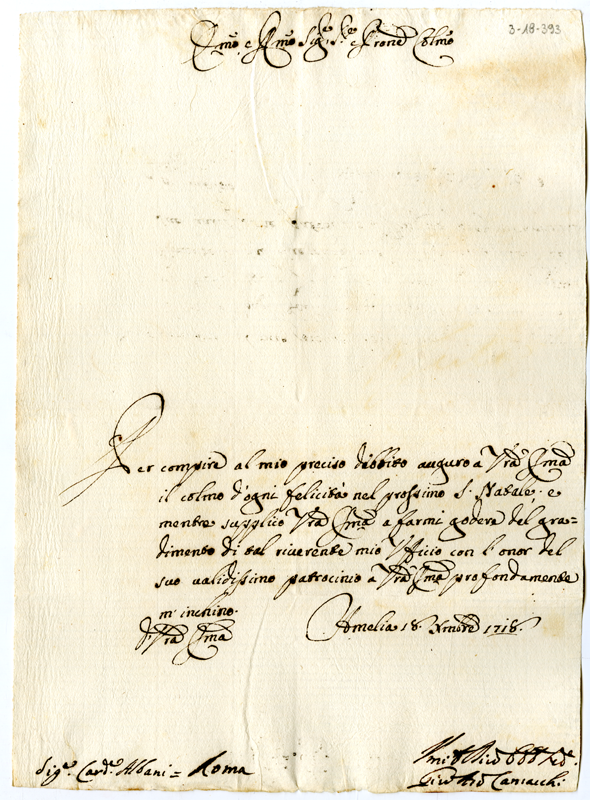 3-18-393
Emo, e Rmo Sigre Sre e Prone Colmo
Per compire al mio preciso debbito auguro a Vra Emza
il colmo d'ogni felicità nel prossimo S. Natale; e
mentre supplico Vra Emza a farmi godere del gra=
dimento di tal riverente mio Ufficio con l'onor del
suo validissimo patrocinio a Vra Emza profondamente
m'inchino.
D. Vra Emza
Amelia 18. Xmbre 1718.
Sigr. Card. Albani = Roma